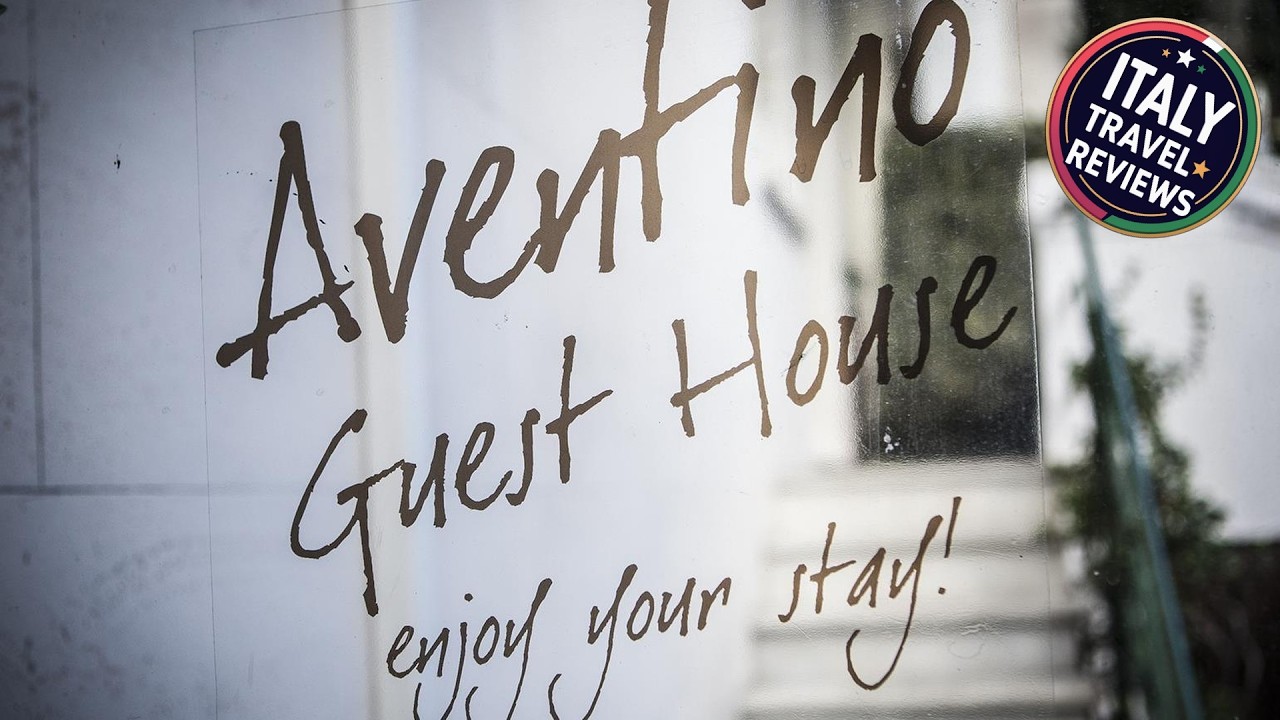 Aventino
Guest House
enjoy your stay!
ITALY
TRAVEL
REVIEWS